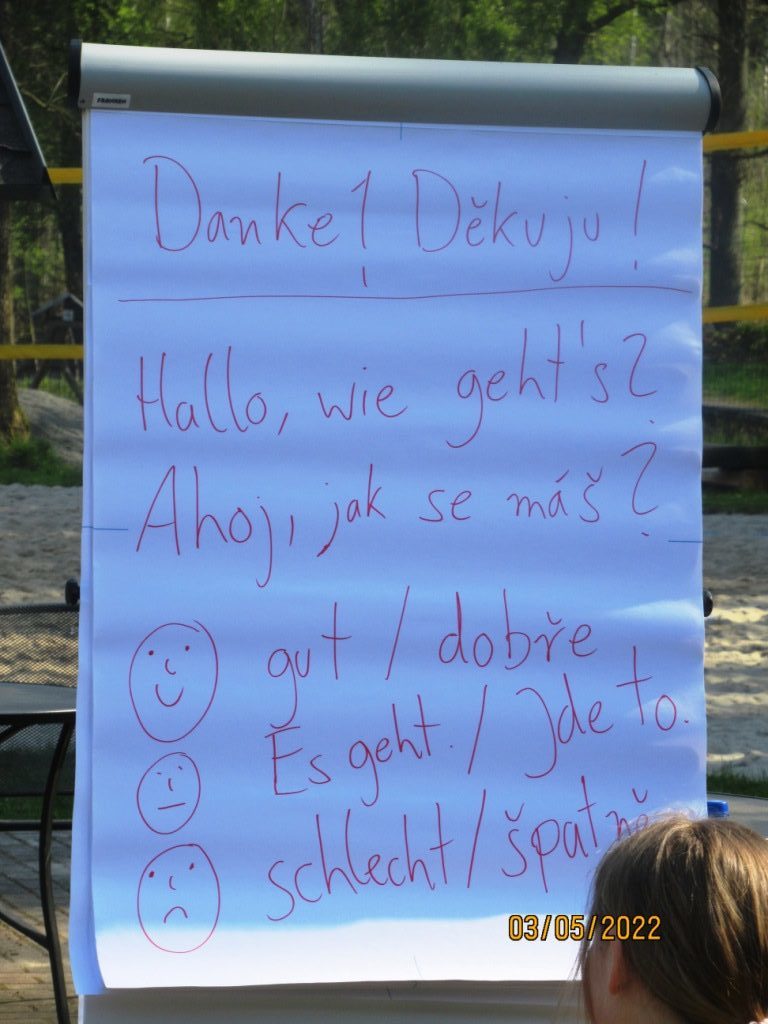 FRANKEN
Danke! Děkuju!
Hallo, wie geht's?
Ahoj, jak se máš?
gut / dobře
Es geht. / Jde to.
schlecht / špatně
03/05/2022